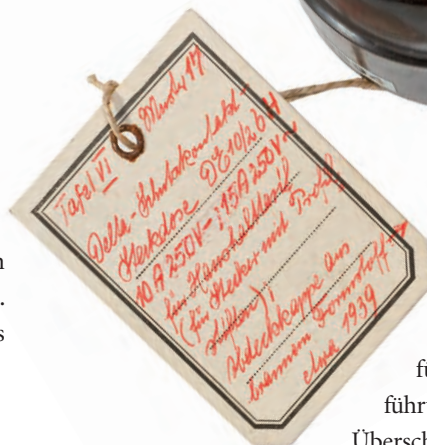 Tafel VI Muster 17
Delta-Schutzkontakt-
Steckdose DE 10/2 b H
10 A 250 V– ; 15 A 250 V~
für Haushaltherd
(für Stecker mit Profil
stiften);
Abdeckkappe aus
braunem Formstoff
etwa 1939
s
fü
führu
Übersch